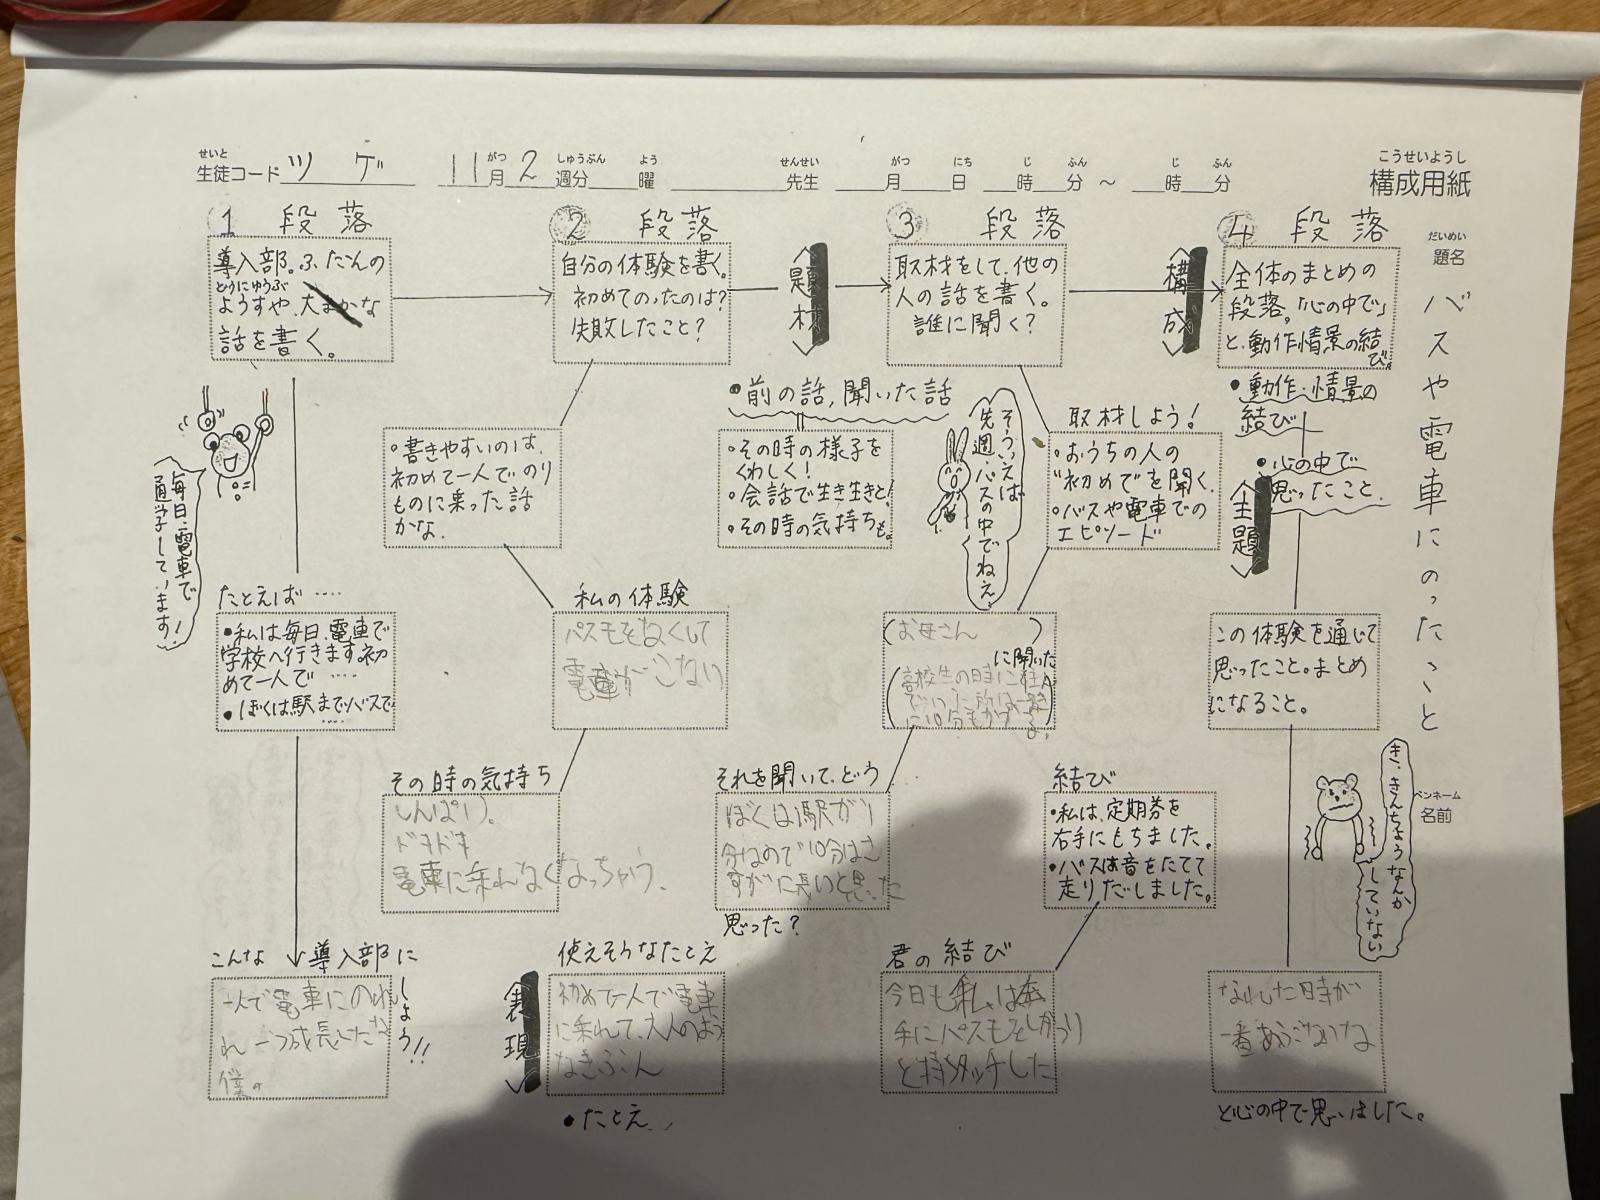 こうせいようし
構成用紙
せいと
生徒コード ツゲ
11月2週分 曜
がつ しゅうぶん よう
せんせい がつ にち じ ふん じ ふん
先生 月 日 時 分 ～ 時 分
だいめい
題名
バスや電車にのったこと
ペンネーム
名前
1 段落
導入部。ふだんの
どうにゅうぶ
ようすや、大まかな
話を書く。
毎日、電車で
通学しています！
たとえば‥‥
・私は毎日、電車で
学校へ行きます。初
めて一人で‥‥
・ぼくは駅までバスで
‥‥
こんな導入部に
しよう!!
一人で電車にのれ
れ一つ成長したな
僕。
2 段落
自分の体験を書く。
初めてのったのは？
失敗したこと？
・書きやすいのは、
初めて一人でのり
ものに乗った話
かな。
私の体験
パスモをなくして
電車がこない
その時の気持ち
しんぱい。
ドキドキ
電車に乗れなくなっちゃう。
使えそうなたとえ
初めて一人で電車
に乗れて、大人のよう
なきぶん
・たとえ
＜表現＞
＜題材＞
・前の話，聞いた話
・その時の様子を
くわしく！
・会話で生き生きと！
・その時の気持ちも。
3 段落
取材をして、他の
人の話を書く。
誰に聞く？
そういえば
先週、バスの中でねえ
取材しよう！
・おうちの人の
“初めて”を聞く。
・バスや電車での
エピソード
(お母さん)
に聞いた
高校生の時に住ん
に10分もかかる。
それを聞いて、どう
ぼくは駅が1
分なので10分はさ
すがに長いと思った
思った？
＜構成＞
4 段落
全体のまとめの
段落。「心の中で」
と、動作情景の結
び。
・動作・情景の
結び
・心の中で
思ったこと。
＜主題＞
この体験を通じて
思ったこと。まとめ
になること。
結び
・私は、定期券を
右手にもちました。
・バスは音をたてて
走りだしました。
き、きんちょうなんか
していない
君の結び
今日も私は
手にパスモをしっかり
と持タッチした
なれた時が
一番あぶないな
と心の中で思いました。